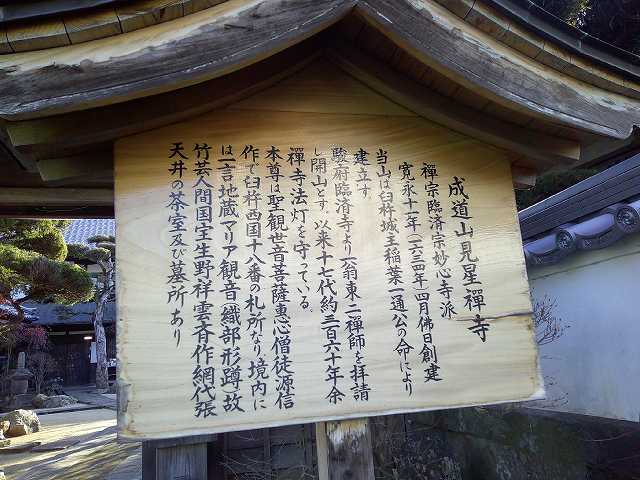 成道山見星禪寺
禪宗臨濟宗妙心寺派
寛永十一年(一六三四年)四月佛日創建
当山は臼杵城主稲葉一通公の命により
建立す
駿府臨済寺より翁東二禪師を拝請
し開山とす。以来十七代約三百六十年余
禪寺法灯を守っている。
本尊は聖観世音菩薩恵心僧徒源信
作で臼杵西国十八番の札所なり境内に
は一言地蔵マリア観音(織部形蹲故
竹芸人間国宝生野祥雲斉作網代張
天井の茶室及び墓所あり